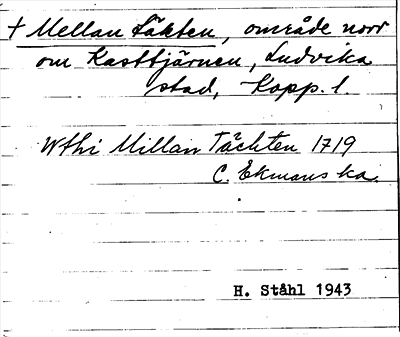 † Mellan Läkten, område norr
om Kasttjärnen, Ludvika
stad, Kopp. l.
Wthi Millan Täckten 1719
C. Ekmans ka.
H. Ståhl 1943